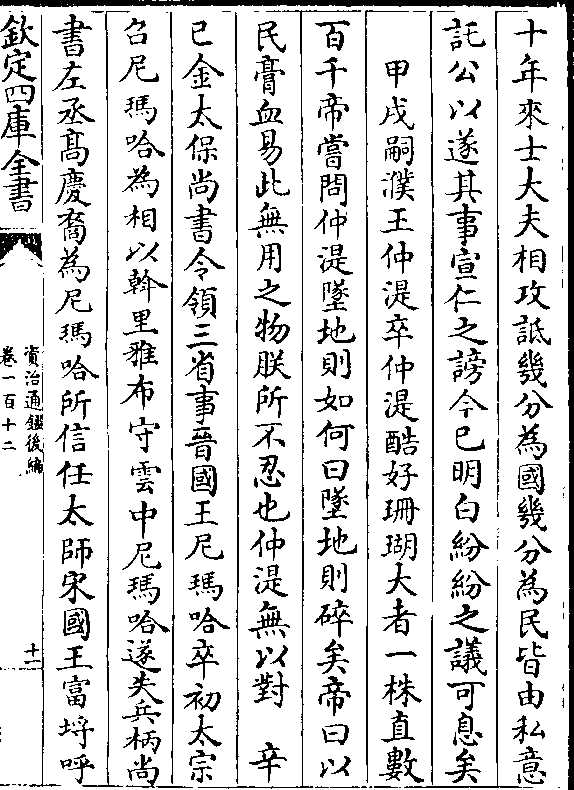 十年來士大夫相攻詆幾分為國幾分為民皆由私意
託公以遂其事宣仁之謗今已明白紛紛之議可息矣
甲戌嗣濮王仲湜卒仲湜酷好珊瑚大者一株直數
百千帝嘗問仲湜墜地則如何曰墜地則碎矣帝曰以
民膏血易此無用之物朕所不忍也仲湜無以對　辛
已金太保尚書令領三省事晉國王尼瑪哈卒初太宗
召尼瑪哈為相以斡里雅布守雲中尼瑪哈遂失兵柄尚
書左丞高慶裔為尼瑪哈所信任太師宋國王富埒呼
欽定四庫全書
資治通鑑後編
卷一百十二
十二